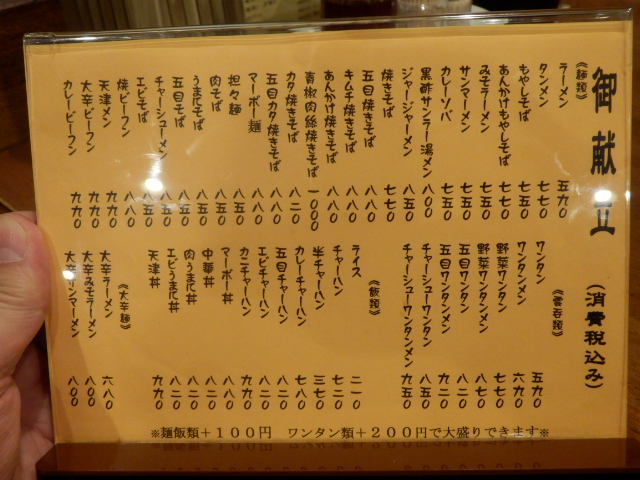 御献立(消費税込み)
《麺類》
ラーメン 五九〇
タンメン 七七〇
もやしそば 七七〇
あんかけもやしそば 七五〇
みそラーメン 七五〇
サンマーメン 七五〇
カレーソバ 七五〇
黒酢サンラー湯メン 八〇〇
ジャージャーメン 八五〇
焼きそば 七七〇
五目焼きそば 八八〇
キムチ焼きそば 八八〇
あんかけ焼きそば 八八〇
青椒肉絲焼きそば 一〇〇〇
カタ焼きそば 八二〇
五目カタ焼きそば 八八〇
マーボー麺 八八〇
坦々麺 八五〇
肉そば 八五〇
うまにそば 八五〇
五目そば 八五〇
チャーシューメン 八五〇
エビそば 八五〇
焼ビーフン 八八〇
天津メン 九九〇
大辛ビーフン 九九〇
カレービーフン 九九〇
《雲呑類》
ワンタン 五九〇
ワンタンメン 六九〇
野菜ワンタン 七七〇
野菜ワンタンメン 八七〇
五目ワンタン 八二〇
五目ワンタンメン 九二〇
チャーシューワンタン 八五〇
チャーシューワンタンメン 九五〇
《飯類》
ライス 二一〇
チャーハン 七二〇
半チャーハン 三七〇
カレーチャーハン 七八〇
五目チャーハン 八二〇
エビチャーハン 八二〇
カニチャーハン 九九〇
マーボー丼 八八〇
中華丼 八二〇
肉うまに丼 八二〇
エビうまに丼 八二〇
天津丼 九九〇
《大辛麺》
大辛ラーメン 六八〇
大辛みそラーメン 八〇〇
大辛サンマーメン 八〇〇
※麺飯類+100円 ワンタン類+200円で大盛りできます※